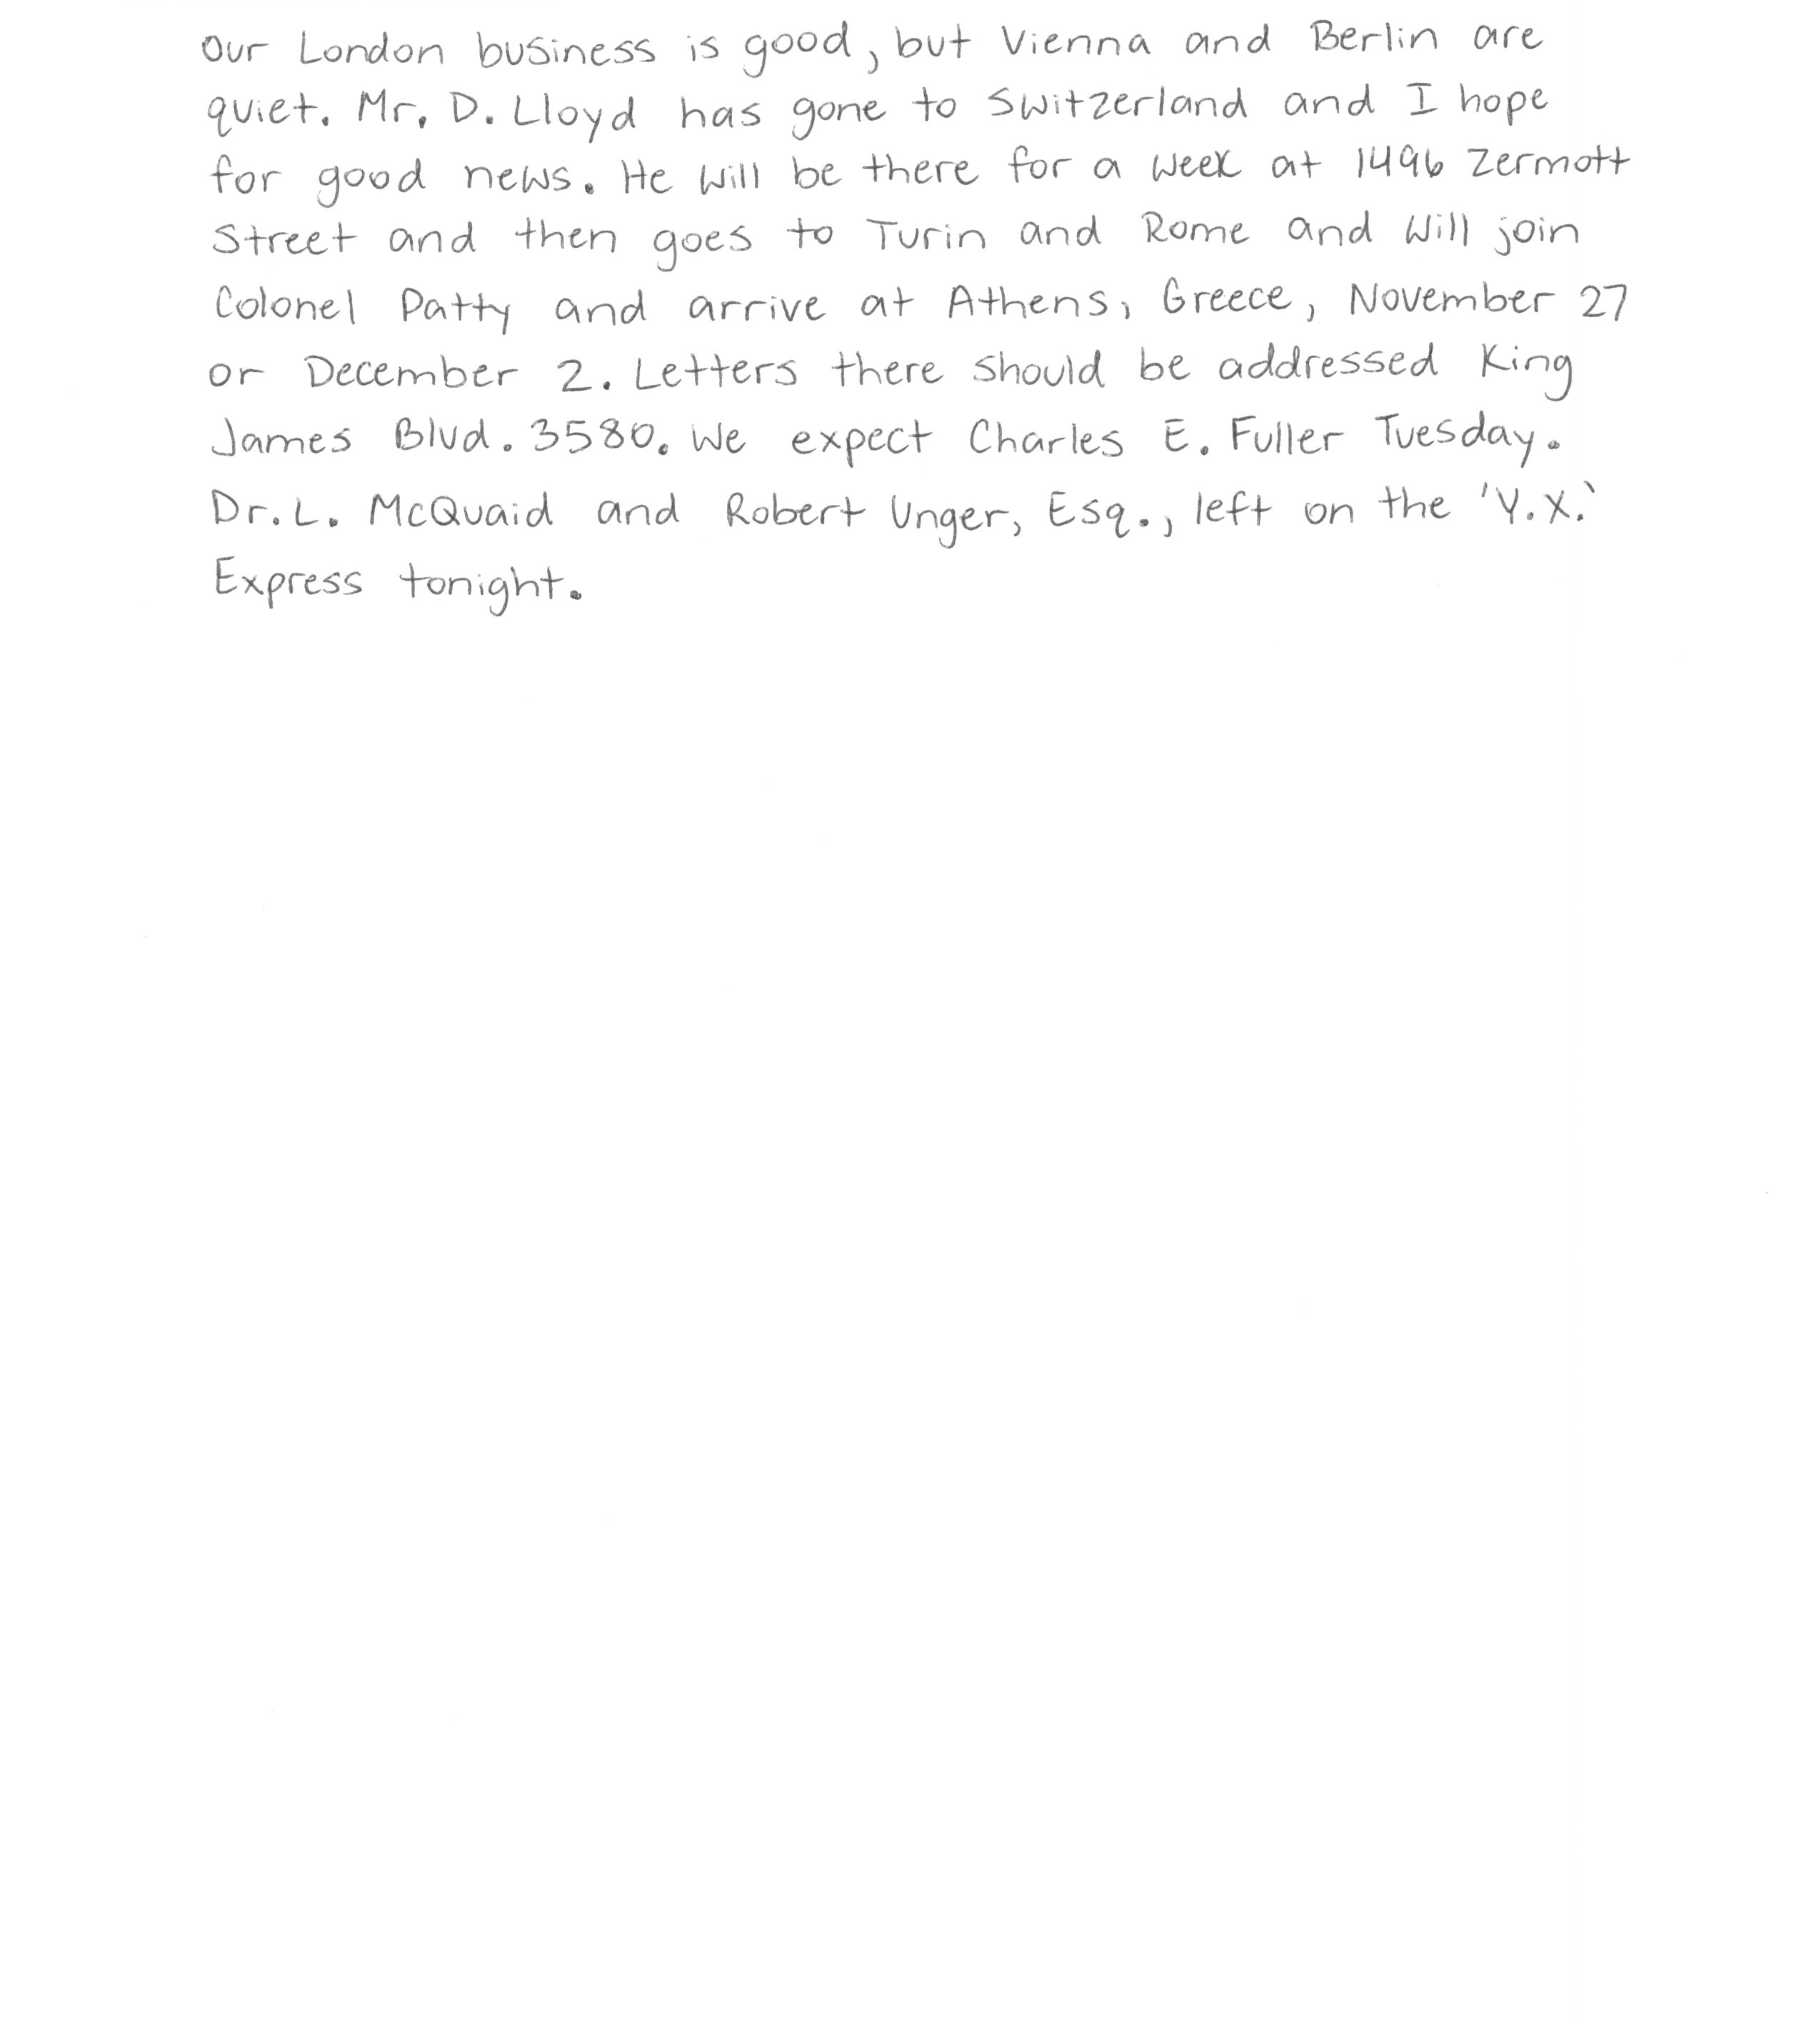 Our London business is good, but Vienna and Berlin are
quiet. Mr. D. Lloyd has gone to Switzerland and I hope
for good news. He will be there for a week at 1496 Zermott
Street and then goes to Turin and Rome and will join
Colonel Patty and arrive at Athens, Greece, November 27
or December 2. Letters there should be addressed King
James Blvd. 3580. We expect Charles E. Fuller Tuesday.
Dr. L. McQuaid and Robert Unger, Esq., left on the 'Y.X.'
Express tonight.